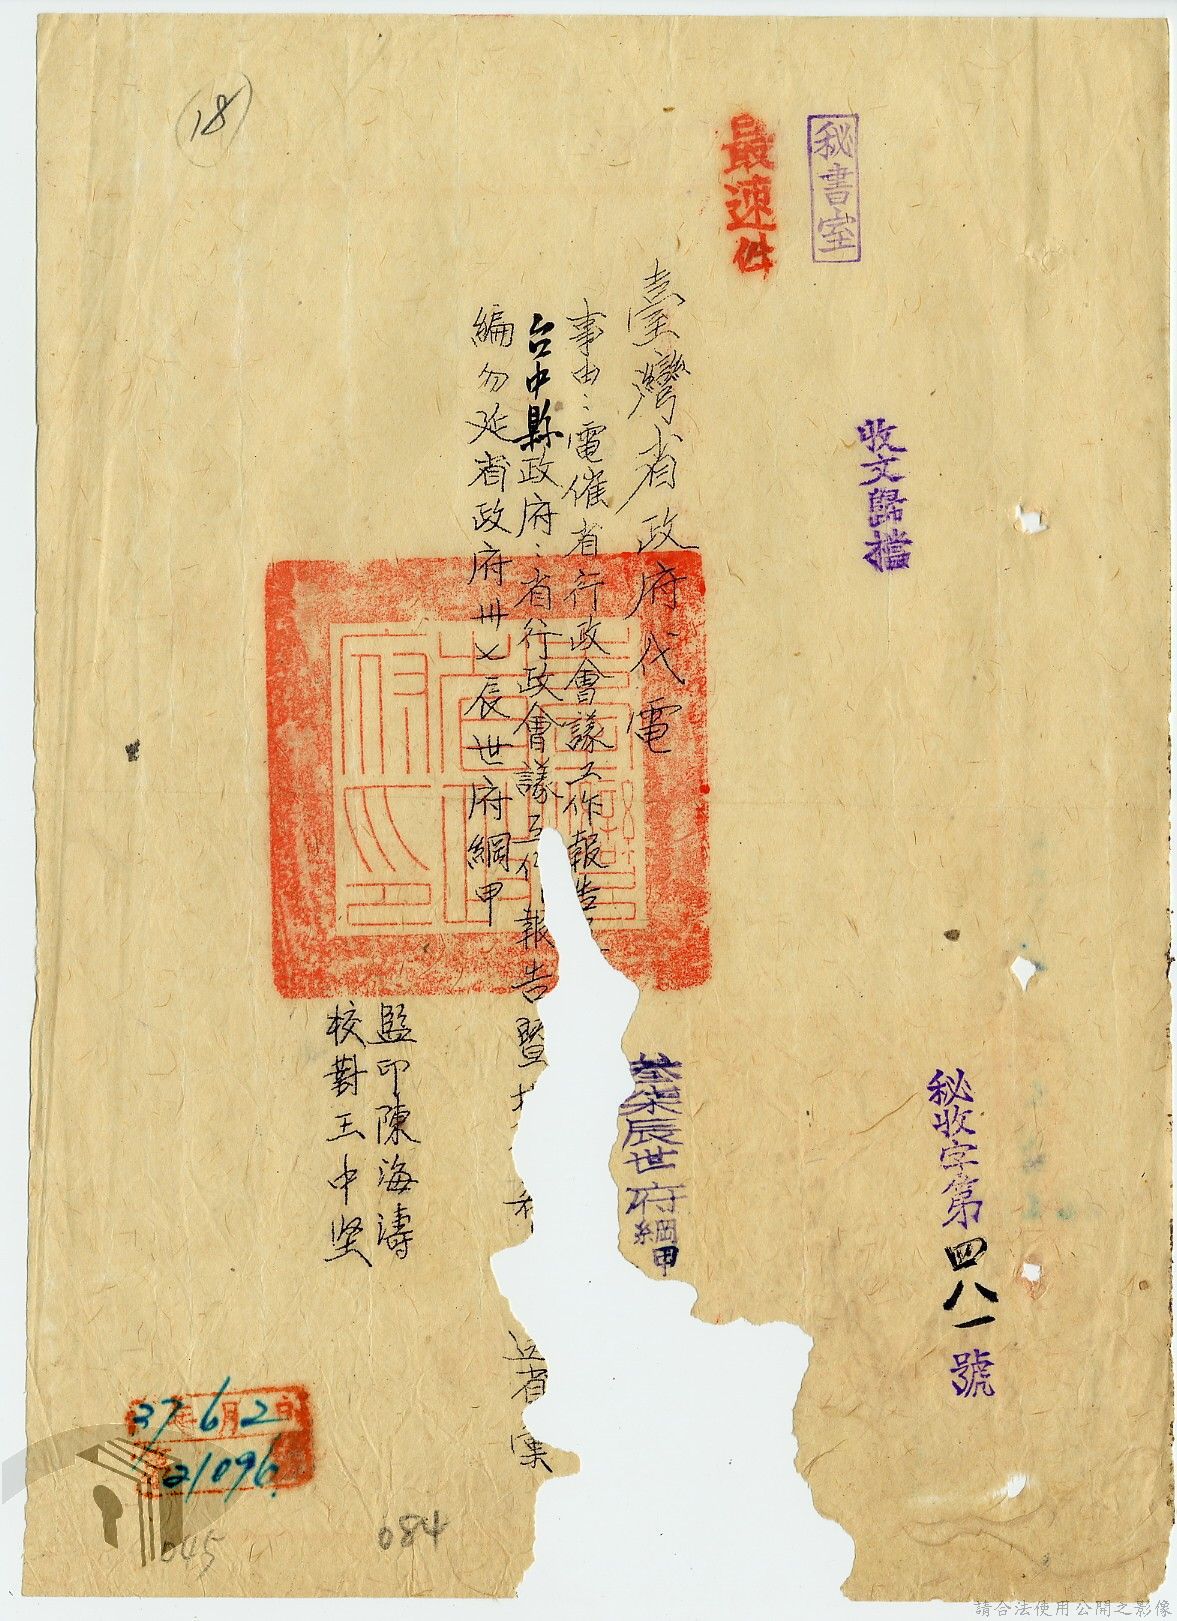 18
秘書室
最速件
收文歸檔
秘收字第四八一號
臺灣省政府代電
事由：電催省行政會議工作報告
叁柒辰世府綱甲
台中縣政府：省行政會議工作報告暨
送省彙
編勿延省政府卅七辰世府綱甲
監印陳海濤
校對王中堅
37年6月2日
21096
045
084
請合法使用公開之影像